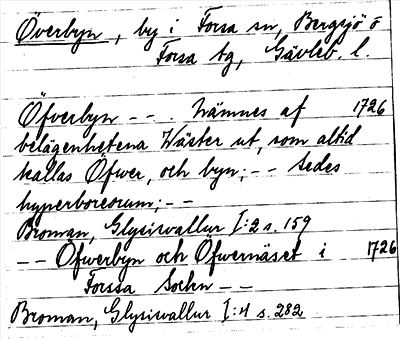 Överbyn, by i Forsa sn, Bergsjö o
Forsa tg, Gävleb. l.
Öfverbyn -- . nämnes af 1726
belägenhetena Wäster ut, som altid
kallas Öfwer, och byn; -- sedes
hyperboreorum; --
Broman, Glysisvallur I:2 s. 159
-- Öfwerbyn och Öfwernäset i 1726
Forssa Sochn --
Broman, Glysisvallur I:4 s. 282